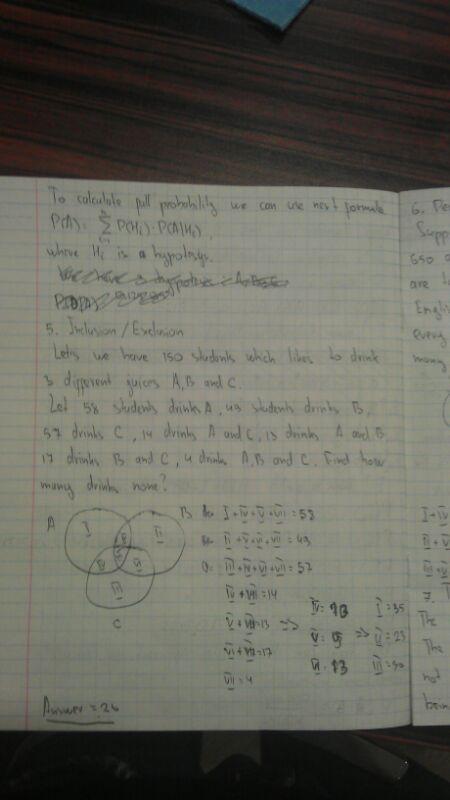 To calculate full probability we can use next formula
P(A) = Σ P(Hi)·P(A|Hi),
where Hi is a hypotesys.
5. Inclusion/Exclusion
Lets we have 150 students which likes to drink
3 different juices A, B and C.
Let 58 students drinks A, 49 students drinks B,
57 drinks C, 14 drinks A and C, 13 drinks A and B
17 drinks B and C, 4 drinks A, B and C. Find how
many drinks none?
A
B
C
I
II
III
I + IV + V + VII = 58
II + V + VI + VII = 49
III + IV + VI + VII = 57
IV + VII = 14
V + VII = 13 =>
VI + VII = 17
VII = 4
IV = 10
V = 9 =>
VI = 13
I = 35
II = 23
III = 30
Answer = 26
6.
Supp
650
are
Engli
every
many
I + IV
II +
III +
7.
The
The
not
being